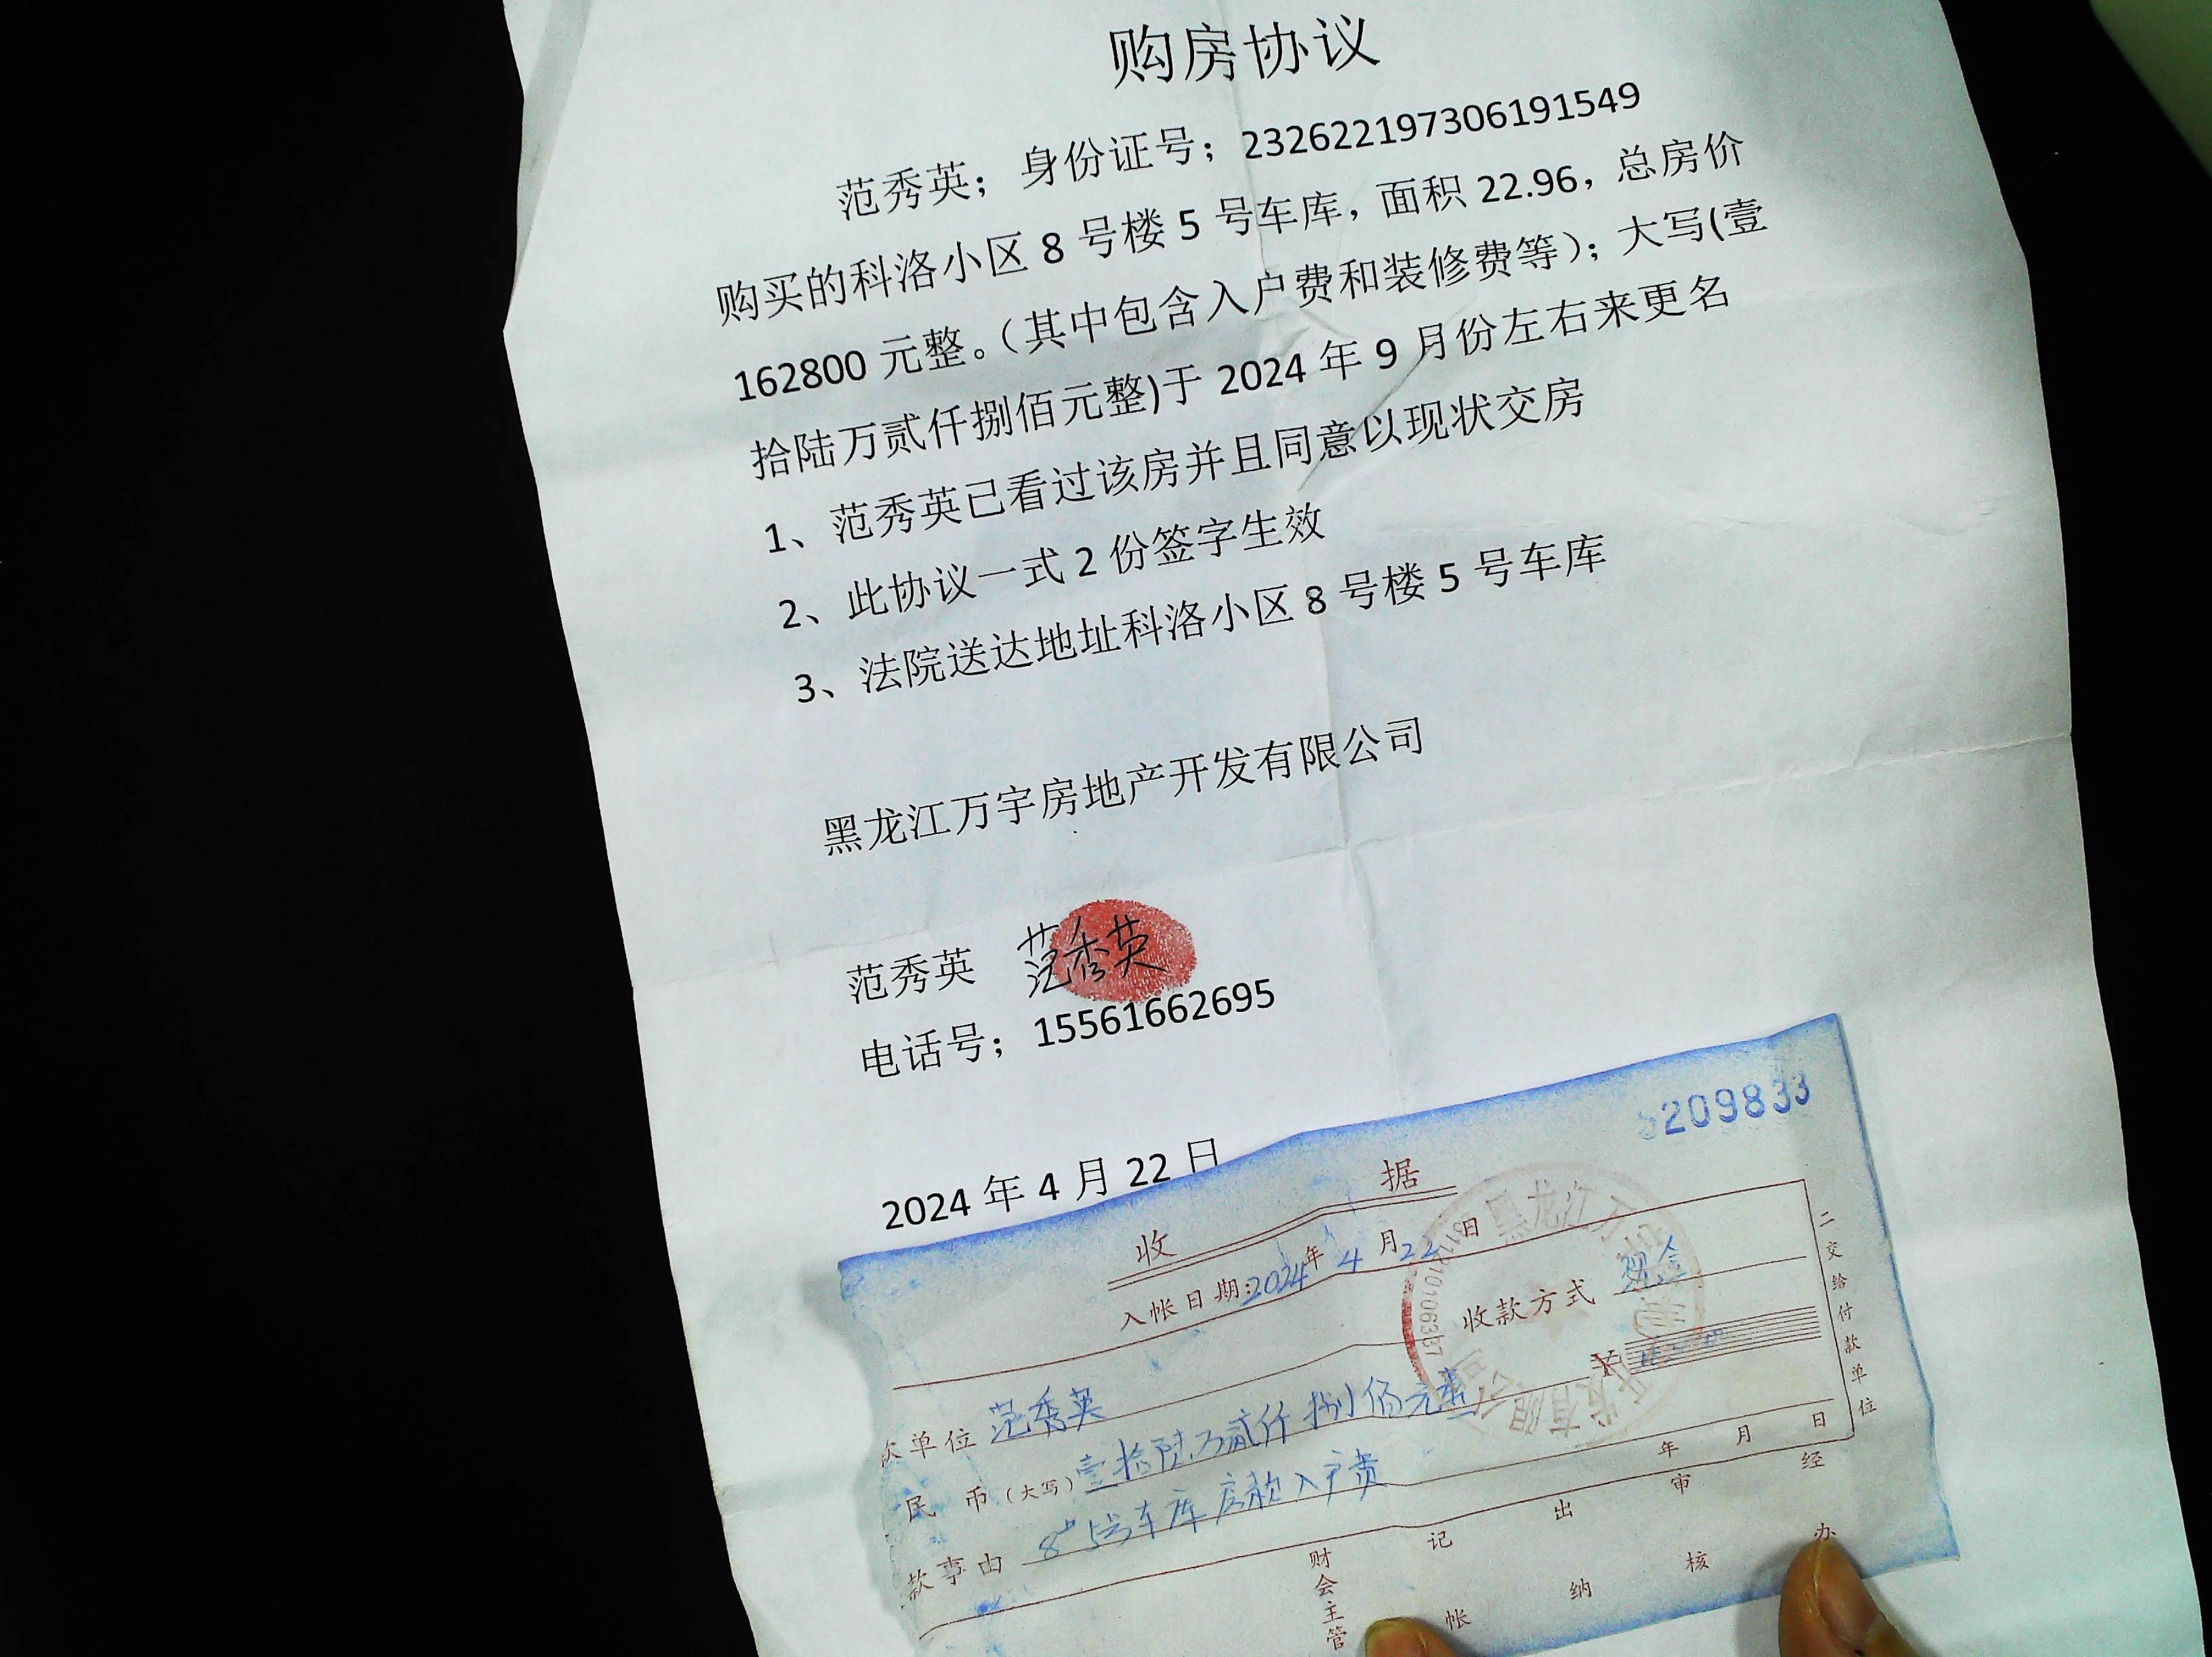 购房协议
范秀英；身份证号；232622197306191549
购买的科洛小区8号楼5号车库，面积22.96，总房价
162800元整。（其中包含入户费和装修费等）；大写(壹
拾陆万贰仟捌佰元整)于2024年9月份左右来更名
1、范秀英已看过该房并且同意以现状交房
2、此协议一式2份签字生效
3、法院送达地址科洛小区8号楼5号车库
黑龙江万宇房地产开发有限公司
范秀英 范秀英
电话号；15561662695
2024年4月22日
209833
收 据
入帐日期:2024年4月22日
收款方式 现金
单位 范秀英
￥
民 币(大写)壹拾陆万贰仟捌佰元整
款事由 8# 5号车库房款入户费
年 月 日
二交给付款单位
财会主管
记帐
出纳
审核
经办
黑龙江万 开发有限公司